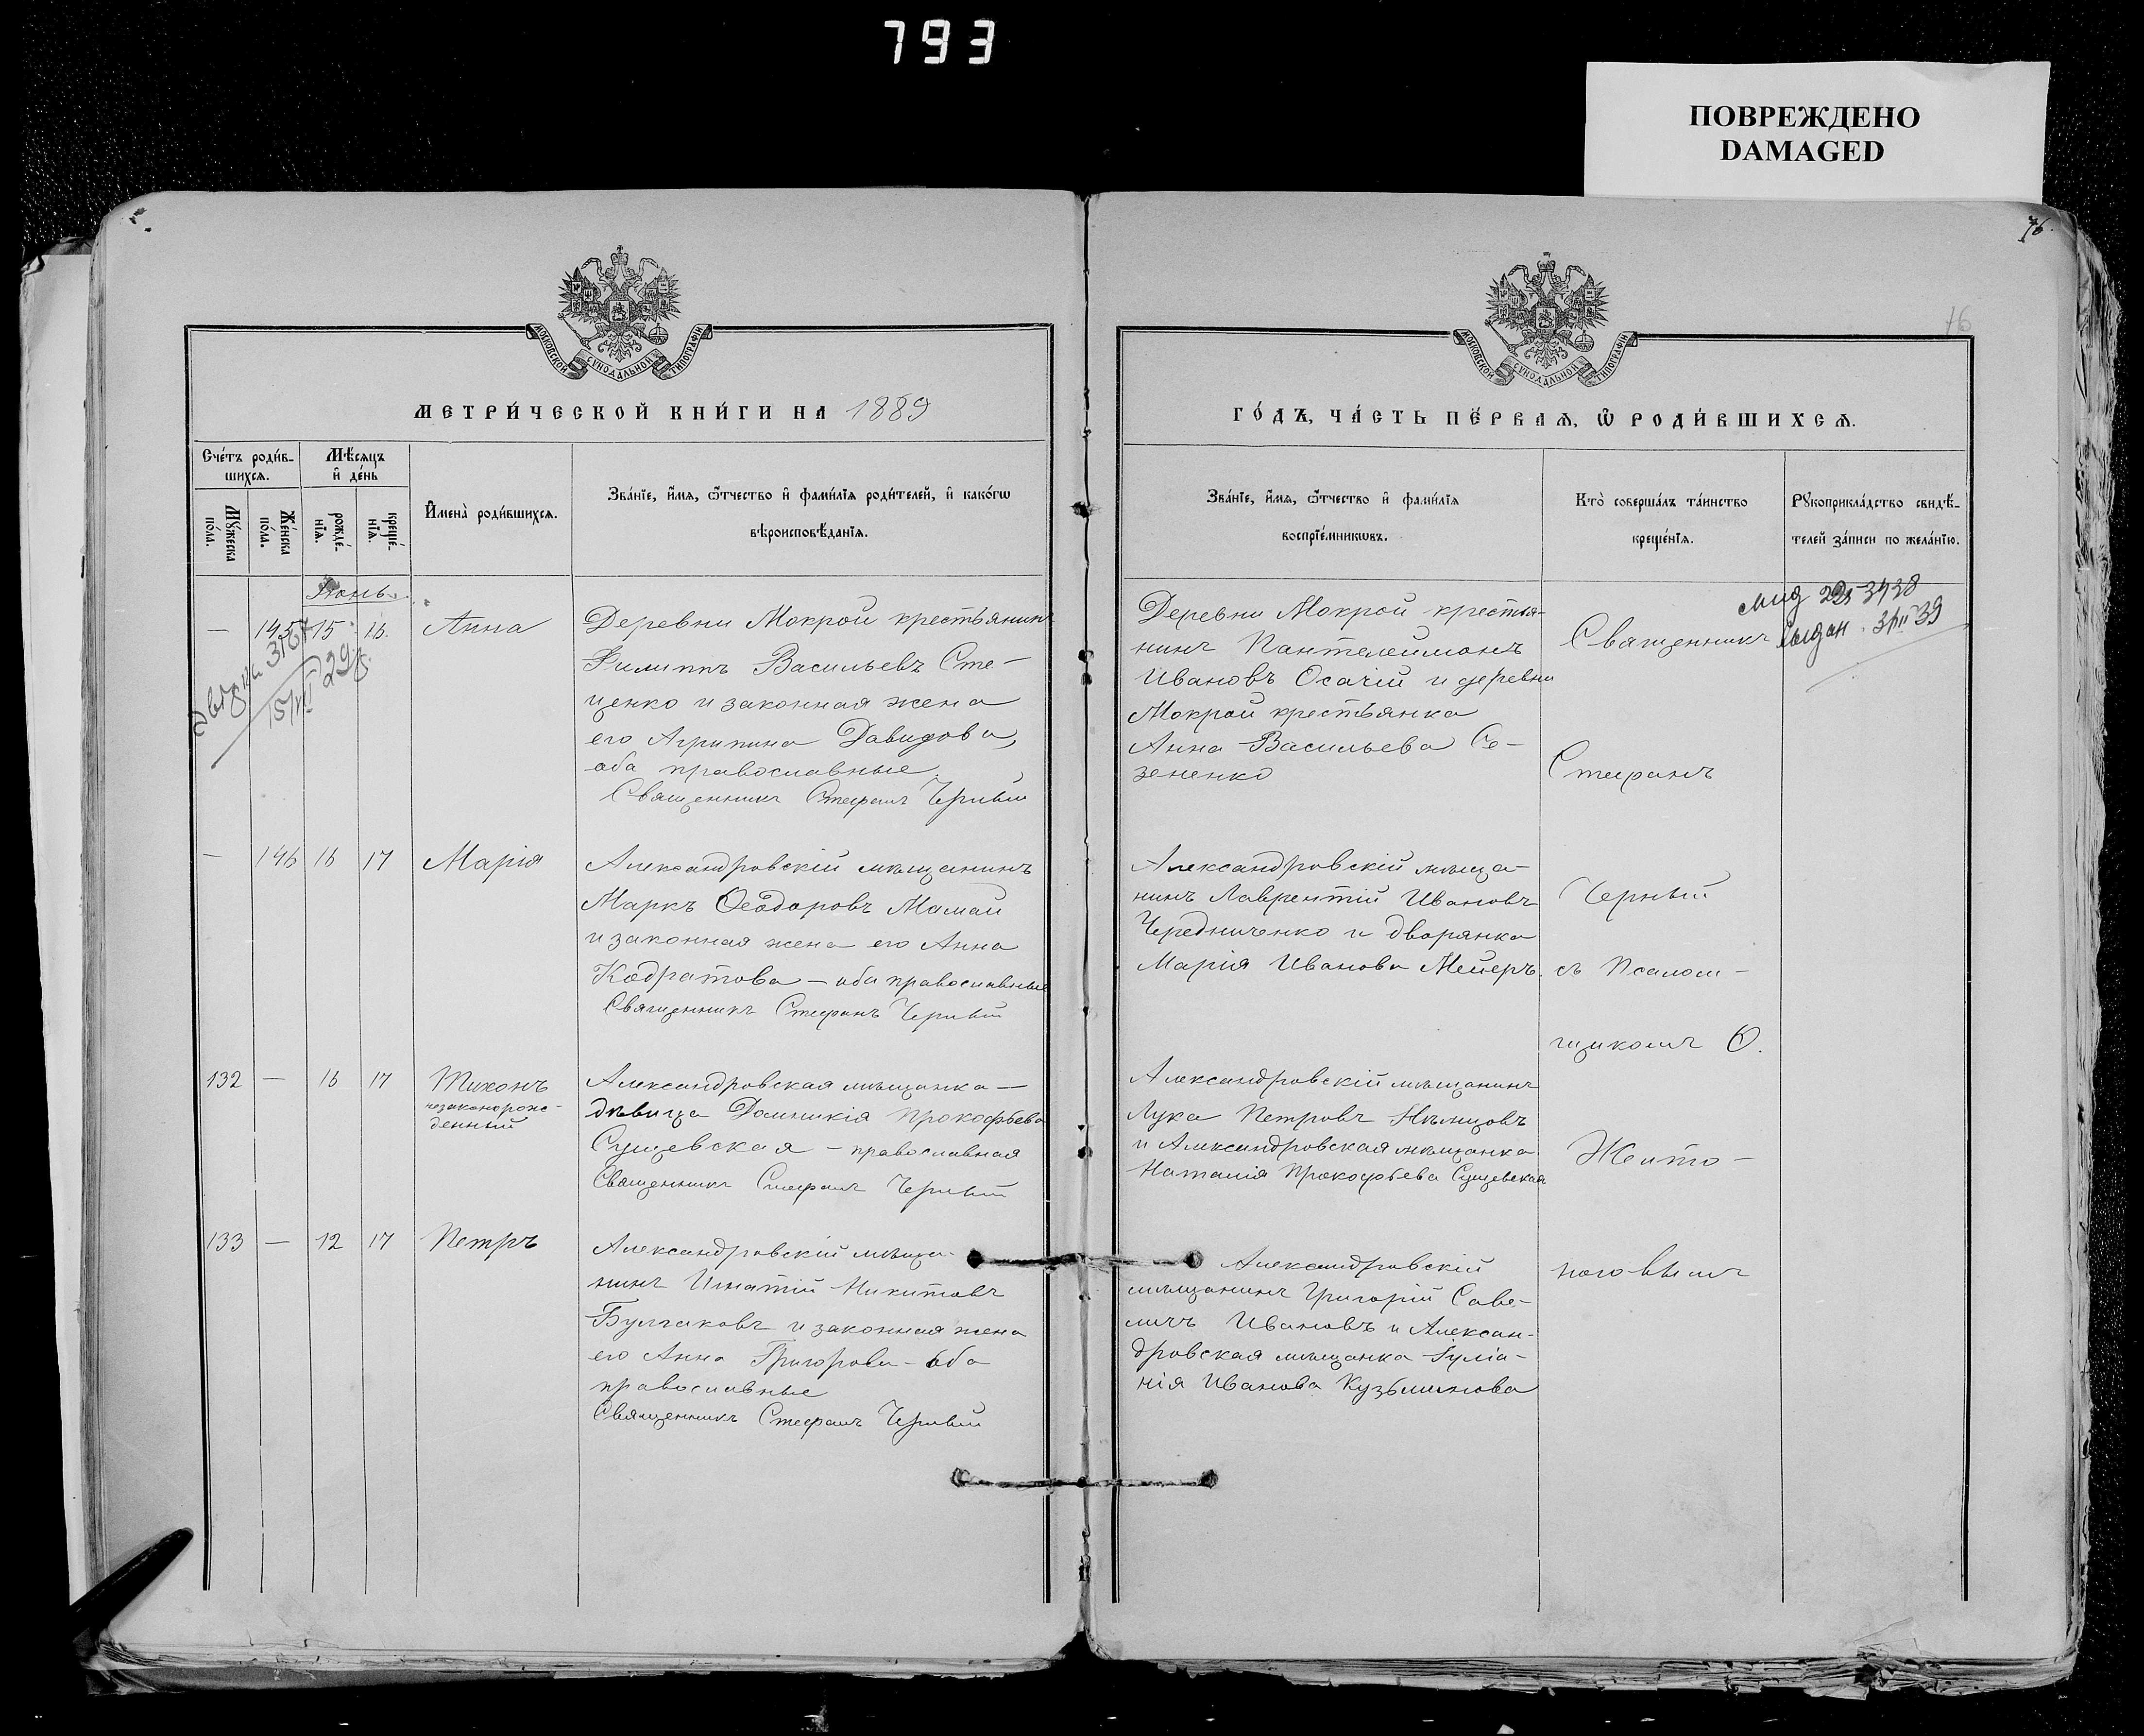 793
ПОВРЕЖДЕНО
DAMAGED
76
76
МОСКОВСКОЙ СѴНОДАЛЬНОЙ ТИПОГРАФІИ
МОСКОВСКОЙ СѴНОДАЛЬНОЙ ТИПОГРАФІИ
МЕТРИ́ЧЕСКОЙ КНИ́ГИ НА 1889
ГО́ДЪ, ЧА́СТЬ ПЕ́РВАѦ, Ѿ РОДИ́ВШИХСѦ.
Сче́тъ роди́в-
шихсѧ.
Мѣ́сѧцъ
и҆ де́нь
Мꙋ́жеска
по́ла.
Же́нска
по́ла.
рожде́-
нїѧ.
креще́-
нїѧ.
И҆мена̀ роди́вшихсѧ.
Зва́нїе, и҆́мѧ, ѻ҆́тчество и҆ фами́лїѧ роди́телей, и҆ како́гѡ
вѣроисповѣ́данїѧ.
Зва́нїе, и҆́мѧ, ѻ҆́тчество и҆ фами́лїѧ
воспрїе́мникѡвъ.
Кто̀ соверша́лъ та́инство
креще́нїѧ.
Рꙋкоприкла́дство свидѣ́-
телей за́писи по жела́нїю.
Іюнь
— 145 15 16. Анна
Деревни Мокрой крестьянинъ
Филиппъ Васильевъ Сте-
ценко и законная жена
его Агрипина Давидова,
оба православные
Священникъ Стефанъ Черный
Деревни Мокрой крестья-
нинъ Пантелеимонъ
Ивановъ Осачій и деревни
Мокрой крестьянка
Анна Васильева
зененко
Священникъ
Стефанъ
выдан
— 146 16 17 Марія
Александровскій мѣщанинъ
Маркъ Ѳеодоровъ Мамай
и законная жена его Анна
Кодратова — оба православные
Священникъ Стефанъ Черный
Александровскій мѣща-
нинъ Лаврентій Ивановъ
Чередниченко и дворянка
Марія Иванова Мейеръ.
Черный
съ Псалом-
щикомъ Ѳ.
132 — 16 17 Тихонъ
незаконорож-
денный
Александровская мѣщанка —
дѣвица Домникія Прокофьева
Сущевская — православная
Священникъ Стефанъ Черный
Александровскій мѣщанинъ
Лука Петровъ Нѣмцовъ
и Александровская мѣщанка
Наталія Прокофьева Сущевская
Желто-
ноговымъ
133 — 12 17 Петръ
Александровскій мѣща-
нинъ Игнатій Никитовъ
Булгаковъ и законная жена
его Анна Григорова — оба
православные
Священникъ Стефанъ Черный
Александровскій
мѣщанинъ Григорій Саве-
личъ Ивановъ и Алексан-
дровская мѣщанка Іуліа-
нія Иванова Кузьминова